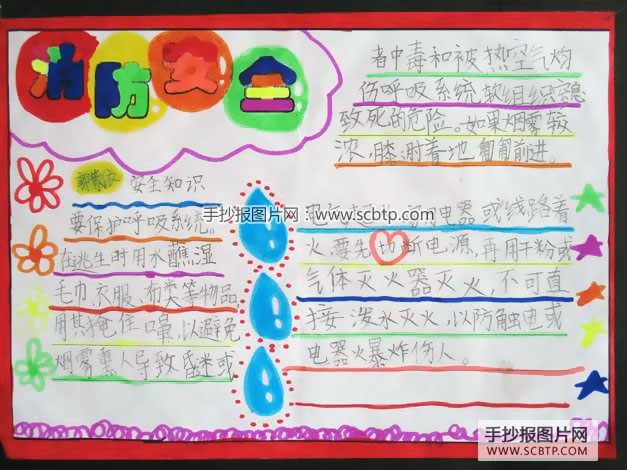 消防安全
安全知识
要保护呼吸系统。
在逃生时用水蘸湿
毛巾、衣服、布类等物品
用其掩住口鼻,以避免
烟雾熏人导致昏迷或
者中毒和被热空气灼
伤呼吸系统软组织窒息
致死的危险。如果烟雾较
浓,膝肘着地匍匐前进。
手抄报图片网:www.scbtp.com
电器或线路着
火,要先切断电源,再用干粉或
气体灭火器灭火,不可直
接泼水灭火,以防触电或
电器火爆炸伤人。
手抄报图片网
WWW.SCBTP.COM